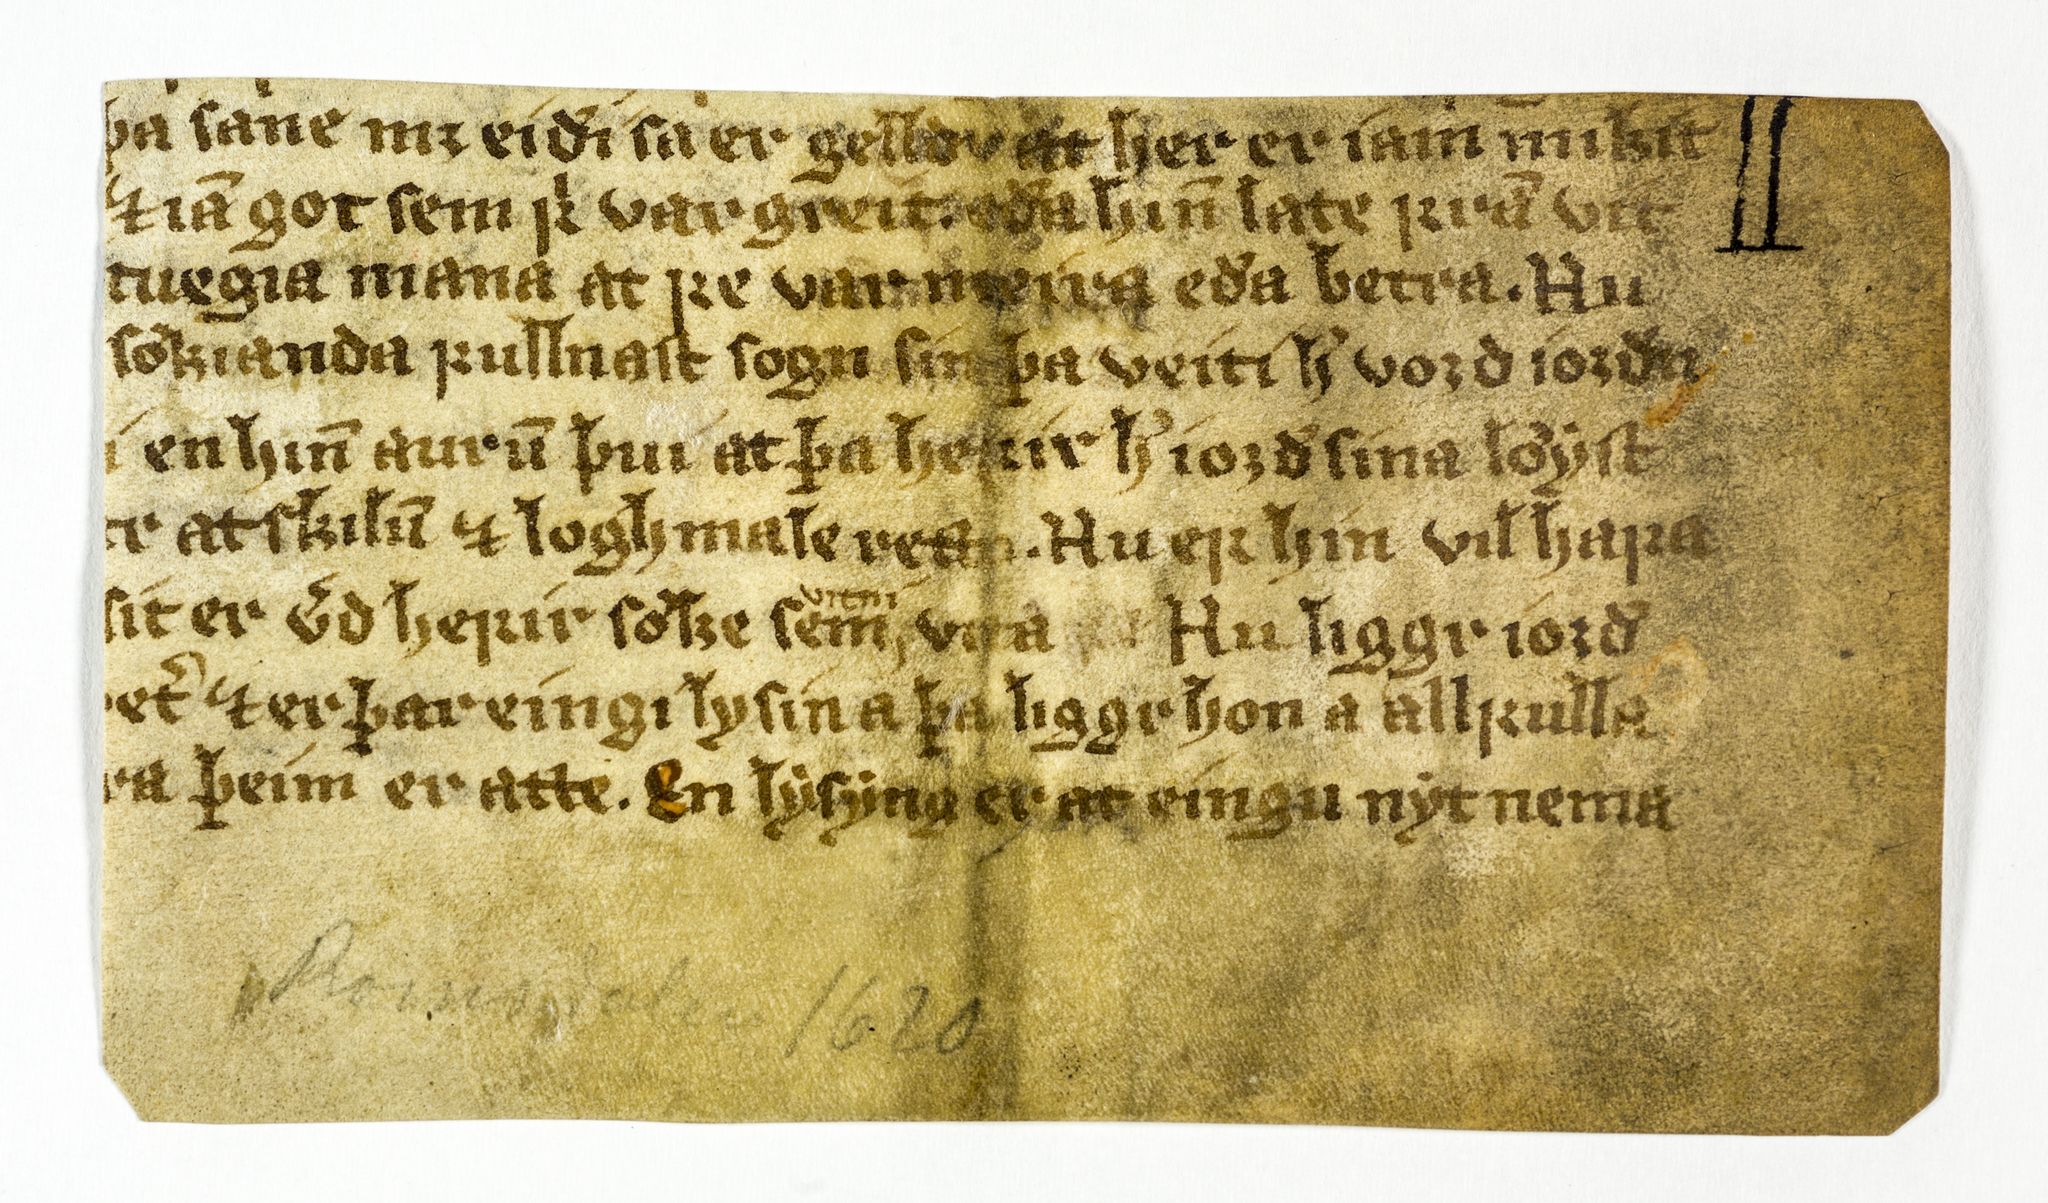 þa sane mꝫ eiði sa er gelldr at her er iam mikit
⁊ iā got sem ꝼ͛ var greitt. eða hiñ late ꝼrā vit
tuegia mana at ꝼe var meira eða betra. Nu
sókianda ꝼullnast sogn sin þa veiti hͦ vorꝺ iorðu
i en hiñ aurū þui at þa heꝼir hͦ iorð sina lóyst
at skilū ⁊ loghmale rean. Nu eꝼ hin vil haꝼa
sit er v͛ð heꝼir sókt sem vitni vita Nu liggr iorð
⁊ er þar eingi lysing a þa liggr hon a allꝼulla
þeim er atte. En lýsýng er at eingu nýt nema
Romsdalen 1620
II